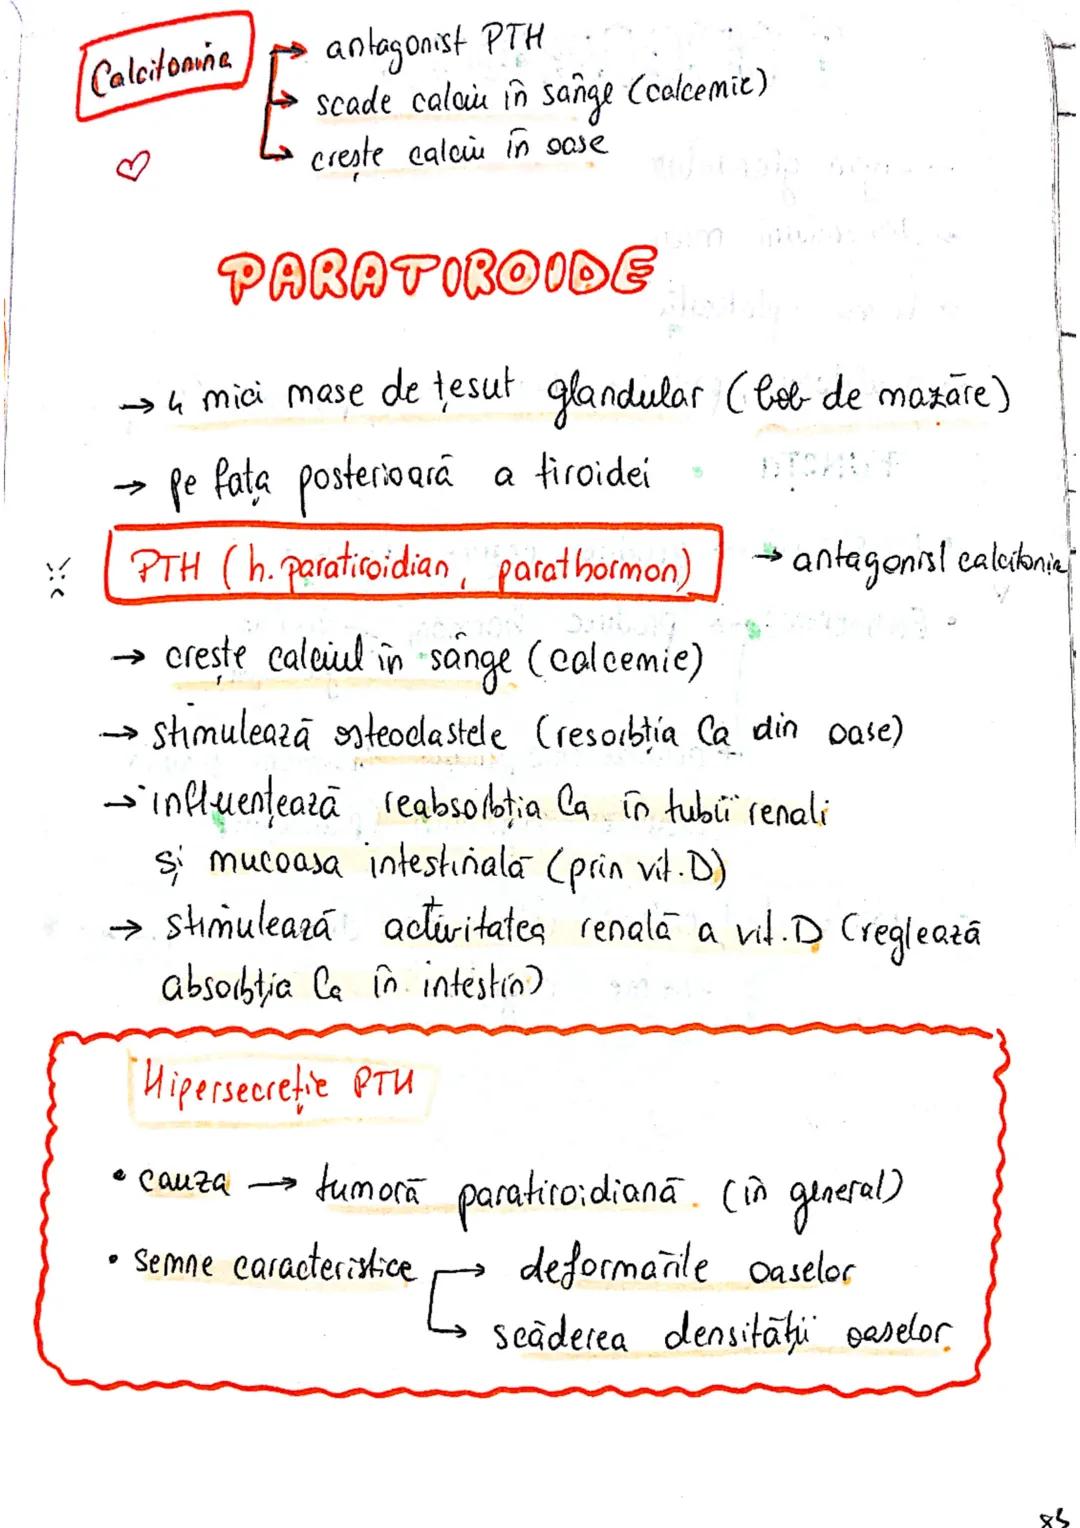 Calcitonina
→ antagonist PTH
→ scade calciu în sânge (calcemie)
→ crește calciu în oase
PARATIROIDE
→ 4 mici mase de țesut glandular (bob de mazăre)
→ pe fața posterioară a tiroidei
PTH (h. paratiroidian, parathormon) → antagonist calcitonia
→ crește calciul în sânge (calcemie)
→ stimulează osteoclastele (resorbția Ca din oase)
→ influențează reabsorbția Ca în tubii renali
și mucoasa intestinală (prin vit. D)
→ stimulează activitatea renală a vit. D (reglează
absorbția Ca în intestin)
Hipersecreție PTH
• cauza → tumoră paratiroidiană. (în general)
• semne caracteristice → deformările oaselor
→ scăderea densității oaselor
85